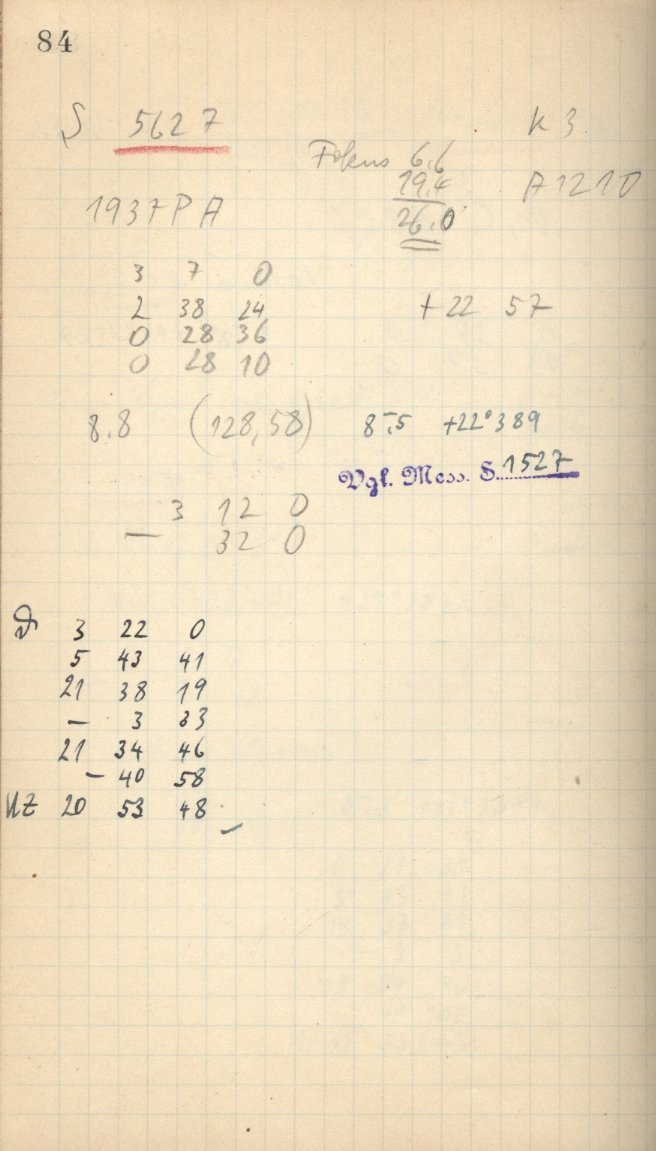 84
S 5627 K 3
Fokus 6.6
19.4 A 1210
1937 P A 26.0
3 7 0
2 38 24 +22 57
0 28 36
0 28 10
8.8 (128,58) 85.5 +22°389
Vgl. Mess. S. 1527
3 12 0
— 32 0
3 22 0
5 43 41
21 38 19
— 3 33
21 34 46
— 40 58
UZ 20 53 48